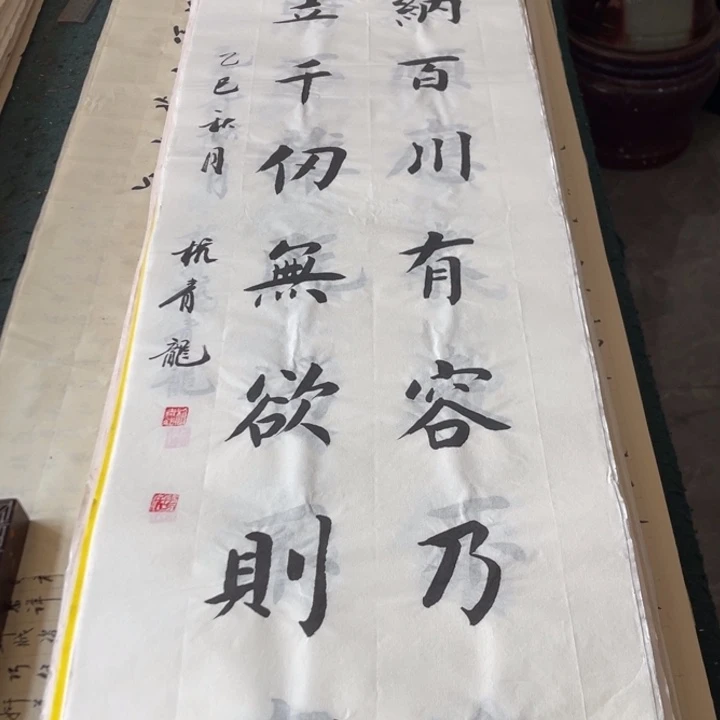 納百川有容乃
立千仞無欲則
乙巳秋月
杭青龍